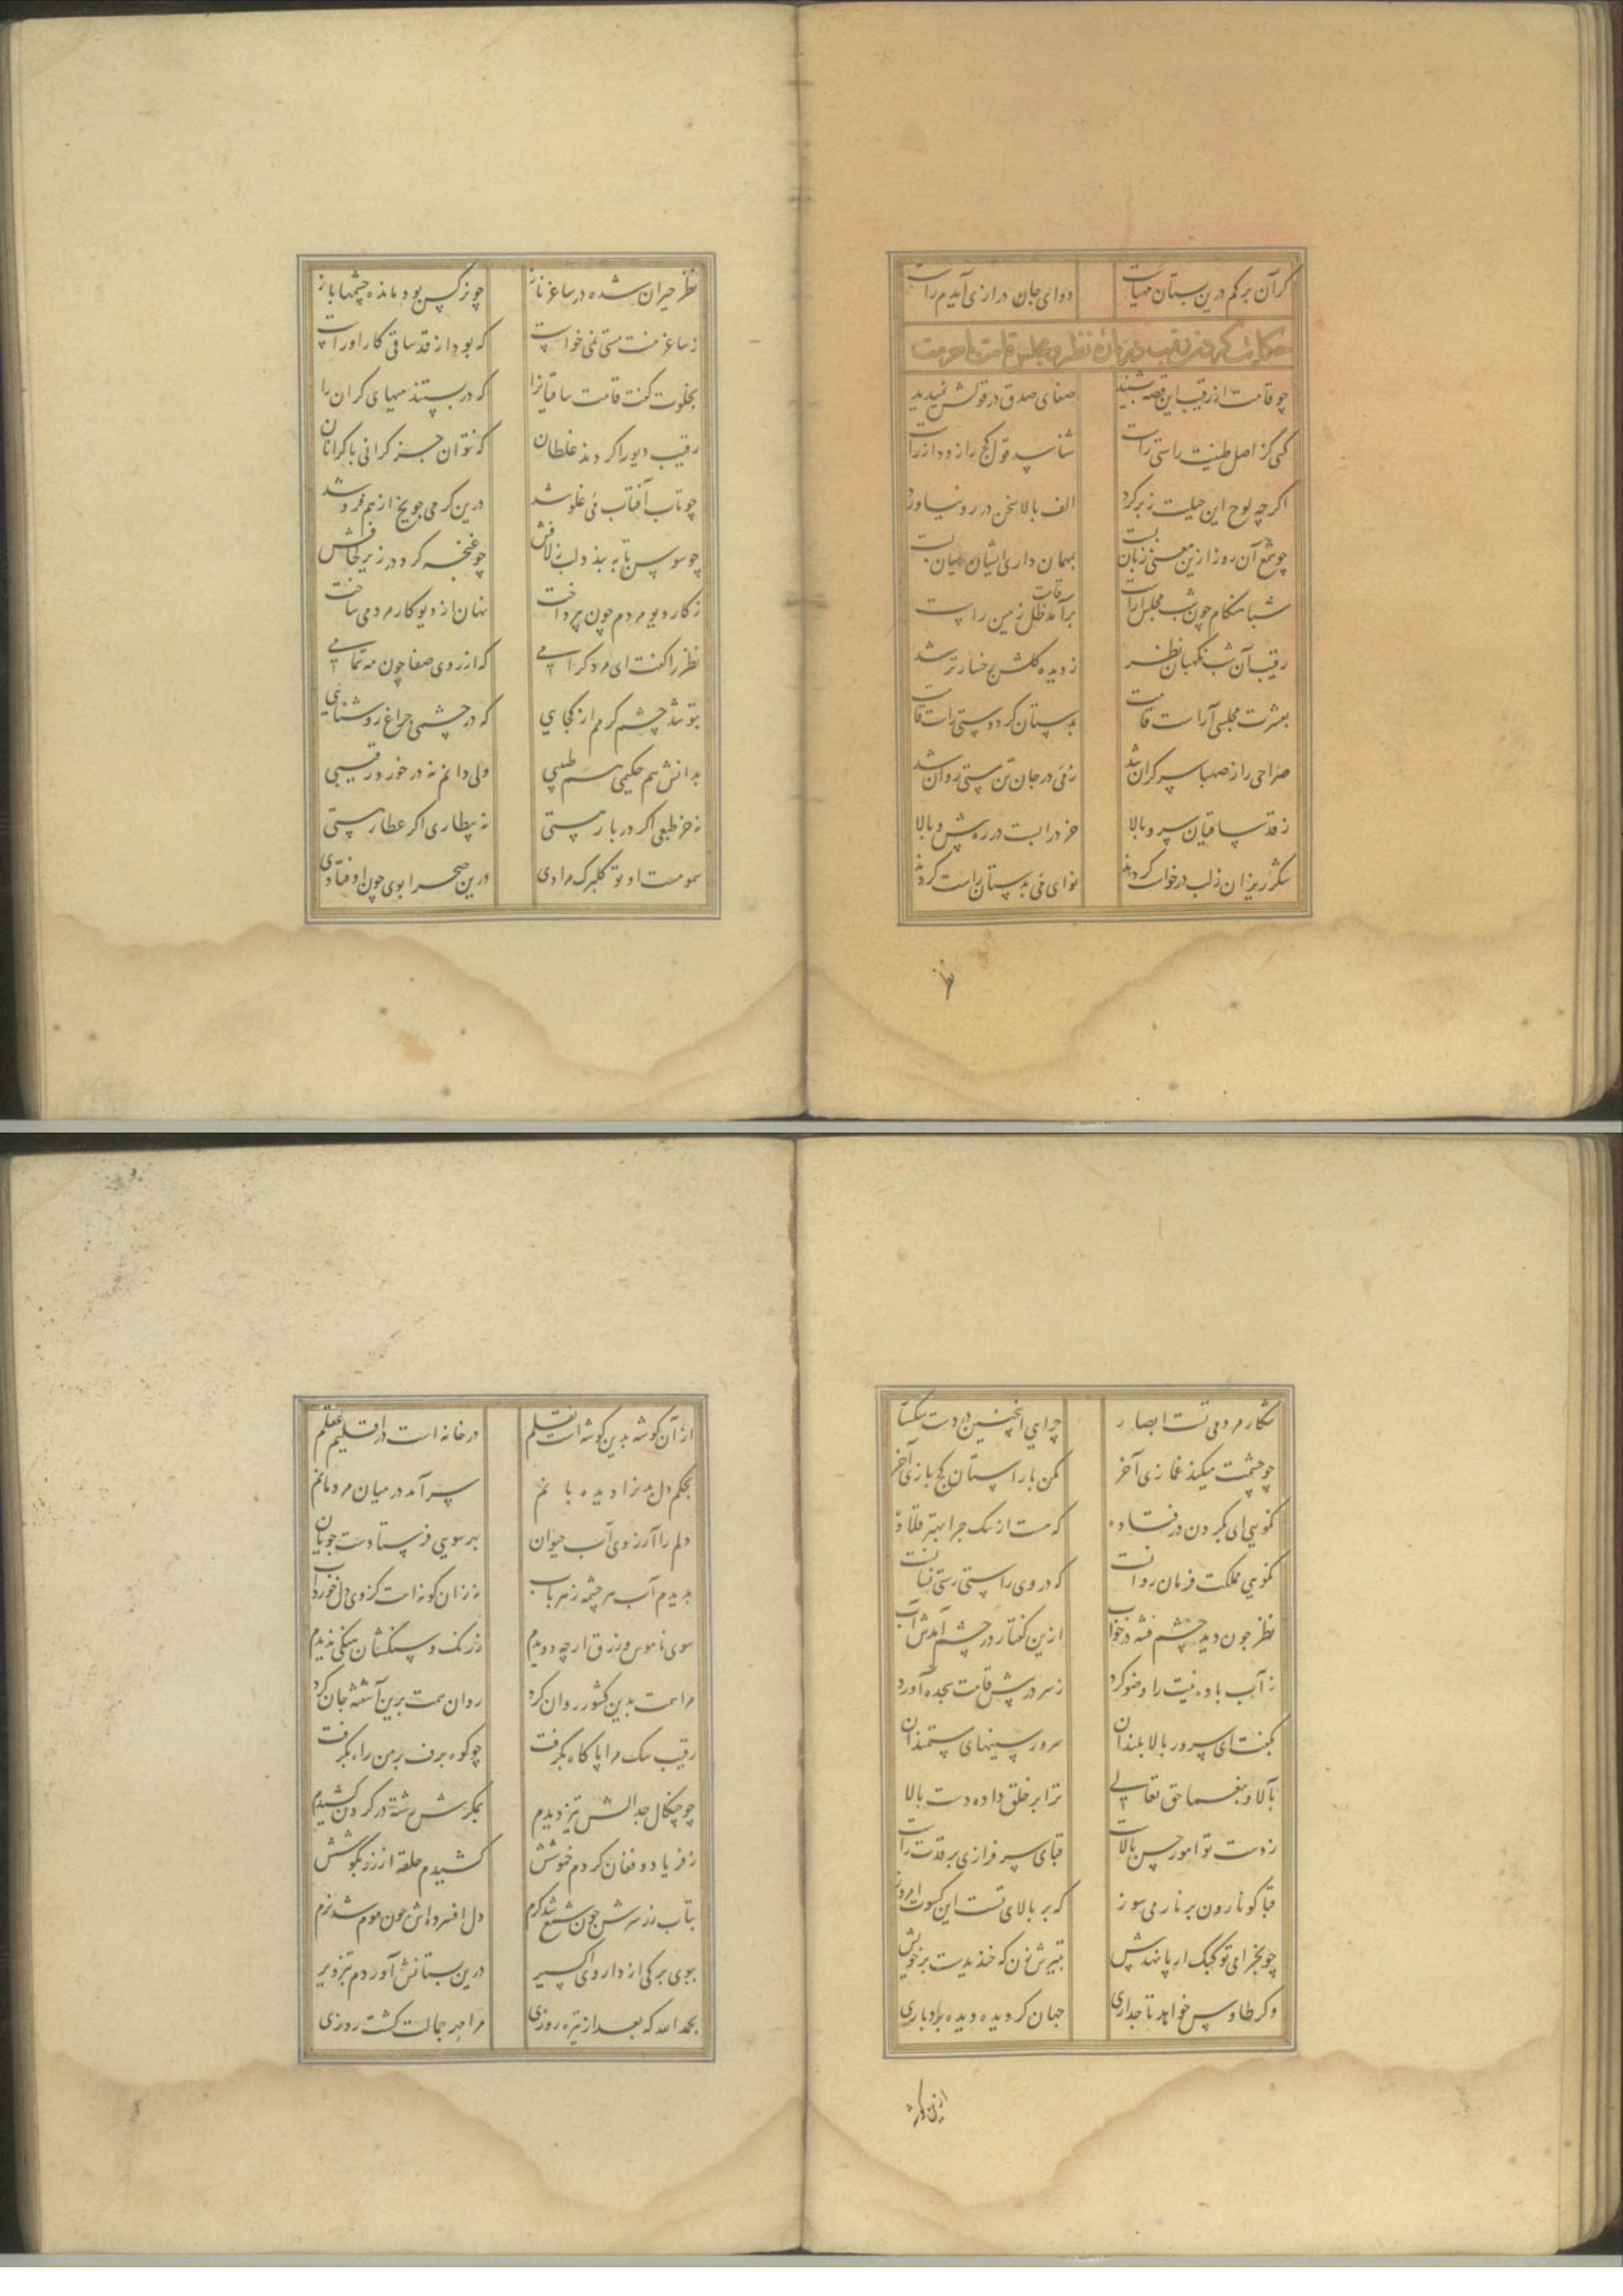 گر آن برگم درین بستان مهیاست دوای جان درازی آیدم راست
چو قامت از رقیب این قصه بشنید صفای صدق در قولش نمیدید
کسی کز اصل طینت راستی راست شناسد قول کج را زود از راست
اگر چه لوح این حیلت ز بر کرد الف بالا سخن در رو نیاورد
چو شمع آن روز ازین معنی زبان بست بمهمان داری ایشان میان بست
شبا هنگام چون شب مجلس آراست برآمد ظل زمین راست
رقیب آن شب نگهبان نظر شد ز دیده گلشن رخسار تر شد
بعشرت مجلسی آراست قامت بدستان کرد دوستی راست قامت
صراحی را ز صهبا سر گران شد ز می در جان تن مستی روان شد
ز قد ساقیان سرو بالا خرد را بست در ره پش و بالا
شکر ریزان ز لب درخواست کردند نوای می بدستان راست کردند
نظر
نظر حیران شده در ساغر ناز چو نرگس بود و مانده چشمها باز
ز ساغر منت مستی نمی خواست که بود از قد ساقی کار او راست
بخلوت گفت قامت ساقیانرا که در بستند میهای گران را
رقیب دیو را کردند غلطان که نتوان جز گرانی با گرانان
چو تاب آفتاب می غلو شد درین گرمی چو یخ از هم فرو شد
چو سوسن تا به بندد لب ز لافش چو غنچه کرد در زیر لحافش
ز کار دیو مردم چون بپرداخت نهان از دیو کار مردمی ساخت
نظر را گفت ای مرد گرامی که از روی صفا چون مه تمامی
بتو شد چشم گرمم از کجایی که در چشمی چراغ روشنایی
بدانش هم حکیمی هم طبیبی ولی دانم نه در خورد رقیبی
نه خر طبعی اگر دربارستی نه بیطاری اگر عطارستی
سمومست او تو گلبرگ مرادی درین صحرا بوی چون اوفتادی
شکار مردمی تست ابصار چرایی اینچنین در دست سگسار
چو چشمت میکند غمازی آخر مکن با راستان کج بازی آخر
نگویی ای بگردن در فتاده که مست از سگ چرا بهتر قلاده
نگویی مملکت فرمان روا نیست که در وی راستی رستی نیانست
نظر چون دید چشم فتنه در خواب ازین گفتار در چشم آمدش آب
ز آب باده نیت را وضو کرد ز سر در پیش قامت سجده آورد
بگفت ای سرور بالا بلندان سرور سینهای مستمندان
بآلا و بنعما حق تعالی ترا بر خلق داده دست بالا
ز دست تو امور حسن بالاست قبای سرفرازی بر قدت راست
قبا گو نارون بر نار می سوز که بر بالای تست این کسوت امروز
چو بخرامی تو کبک ار پا نهد پیش بتیرش زن که خندیدست بر خویش
و گر طاوس خواهد تاجداری جهان گردیده دیده بردباری
ازین گوشه
از آن گوشه بدین گوشه است نقلم در خانه است در اقلیم عقلم
بحکم دل بدنزا دیده بانم سر آمد در میان مردمانم
دلم را آرزوی آب حیوان بهر سویی فرستادست جویان
بدیدم آب سر چشمه ز هر باب نه زان گونه است کزوی دل خورد آب
سوی ناموس و زرق ار چه دویدم ز رنگ و سنگشان سنگی ندیدم
مرا همت بدین کشور روان کرد روان همت برین آشفته جان کرد
رقیب سگ مرا پا گاه بگرفت چو کوه برف بر من راه بگرفت
چو چنگال جدالش تیز دیدم بمکرش رشته در گردن کشیدم
ز فریاد و فغان کردم خموشش کشیدم حلقه از زر بگوشش
بتاب زر سرش چون شمع شد گرم دل افسرده اش چون موم شد نرم
ببوی برگی از داروی اکسیر درین بستانش آوردم بتزویر
بحمد الله که بعد از تیره روزی مرا مهر جمالت گشت روزی